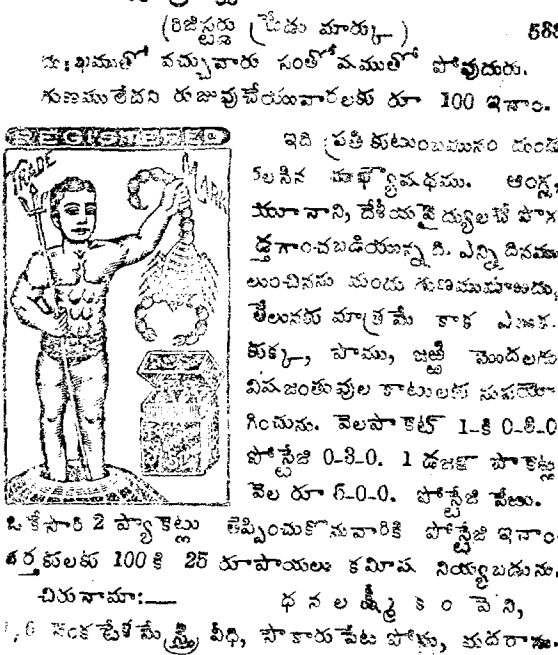 (రిజిస్టర్డు ట్రేడు మార్కు)
దుఃఖముతో వచ్చువారు సంతోషముతో పోవుదురు.
గుణములేదని రుజువుచేయువారలకు రూ 100 ఇనాం.
REGISTERED
TRADE MARK
ఇది ప్రతి కుటుంబమునం దుండ
వలసిన ముఖ్యౌషధము. ఆంగ్ల,
యూనాని, దేశీయవైద్యులచే పొగ
డ్తగాంచబడియున్నది. ఎన్ని దినము
లుంచినను మందు గుణముమారదు.
తేలునకు మాత్రమే కాక ఎలుక.
కుక్క, పాము, జెఱ్ఱి మొదలగు
విషజంతువుల కాటులకు నుపయో
గించును. వెలపాకెట్ 1-కి 0-8-0
పోస్టేజి 0-8-0. 1 డజను పాకెట్ల
వెల రూ 5-0-0. పోస్టేజి వేరు.
ఒకేసారి 2 ప్యాకెట్లు తెప్పించుకొనువారికి పోస్టేజి ఇనాం.
వర్తకులకు 100కి 25 రూపాయలు కమీషన్ నియ్యబడును.
చిరునామా:— ధనలక్ష్మీ కంపెని,
వెంకటేశమేస్త్రి వీధి, సౌకారుపేట పోస్టు, మదరాసు.